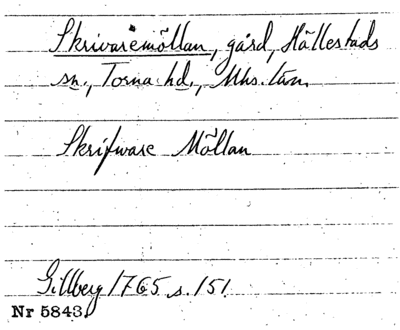 Skrivaremöllan, gård, Hällestads
sn., Torna hd., Mhs. län.
Skrifware Möllan
Gillberg 1765 s. 151.
Nr 5843.